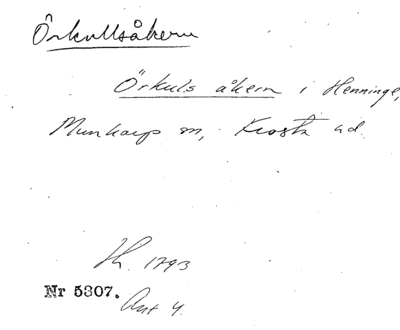 Örkullsåkern
Örkuls åkern i Henninge,
Munkarp sn, Frosta hd
Hh. 1793
Nr 5307.
Ant 4.